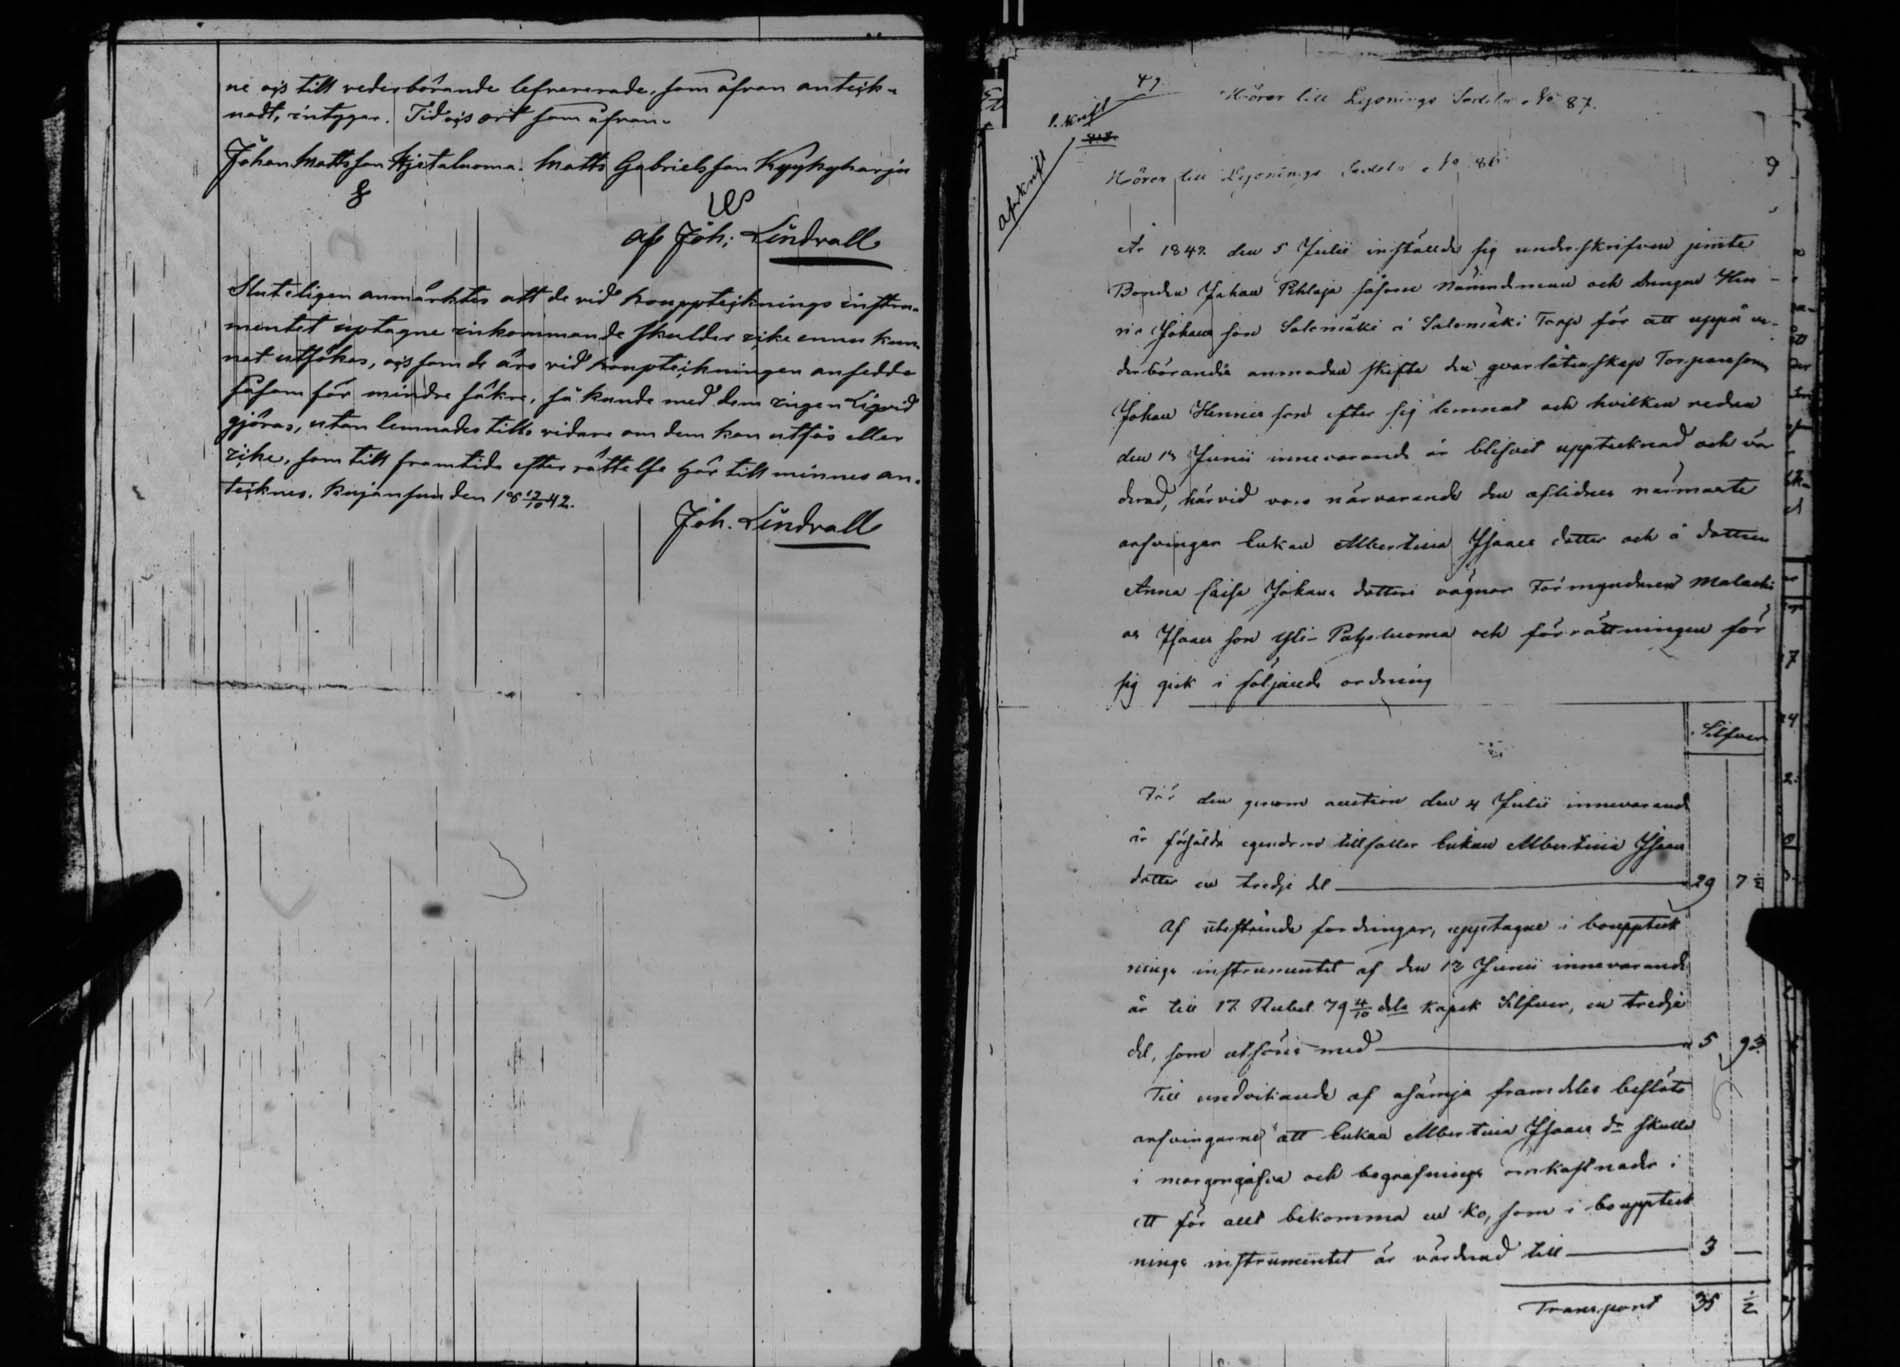 ne ojs till vederbörande lefrererade, som ofvan anteck-
nadt, intygar. Tid ojs ort som ofvan.
Johan Mattsson Hjetaluoma. Matts Gabrielsson Kyykyharju
af Joh: Lindvall
Sluteligen anmärktes att de vid bouppteckningsinstru-
mentet uptagne inkommande skulder icke ennu kun-
nat utsökas, ojs som de äro vid bouppteckningen ansedde
såsom för mindre säkre, så kunde med dem ingen Liqvid
gjöras, utan lemnades till vidare om dem kan utfås eller
icke, som till framtida efterrättelse här till minnes an-
tecknes. den 18 12/10 42.
Joh. Lindvall
49
Hörer till Lysnings Sedeln No 87.
Afskrift
Hörer till Lysnings Sedeln No 86
År 1842 den 5 Julii inställde sig underskrifven jemte
Bonden Johan Pihlaja såsom Nämndeman och Drengen Hen-
ric Johansson Salomäki å Salomäki Torp för att uppå ve-
derbörandes anmodan skifta den qvarlåtenskap Torparesonen
Johan Henricsson efter sig lemnat och hvilken redan
den 13 Junii innevarande år blifvit upptecknad och vär
derad, härvid voro närvarande den aflidnes närmaste
arfvingar Enkan Albertina Isaacs dotter och å dottren
Anna Caisa Johans dotters vägnar Förmyndaren Malachi
as Isaacsson Yli-Patjoluoma och förrättningen för
sig gick i följande ordning
Silfver
För den genom auction den 4 Julii innevarande
år försålde egendom tillfaller Enkan Albertina Isaacs
dotter en tredje del 29 7 1/2
Af utestående fordringar, upptagne i bouppteck
nings instrumentet af den 13 Junii innevarande
år till 17 Rubel 79 4/10 dels kopek Silfver, en tredje
del, som utföres med 5 93
Till undvikande af osämja framdeles beslöto
arfvingarne att Enkan Albertina Isaacs dr skulle
i morgongåfva och begrafnings omkostnader i
ett för allt bekomma en Ko, som i bouppteck
nings instrumentet är värderad till 3 —
Transport 35 1/2